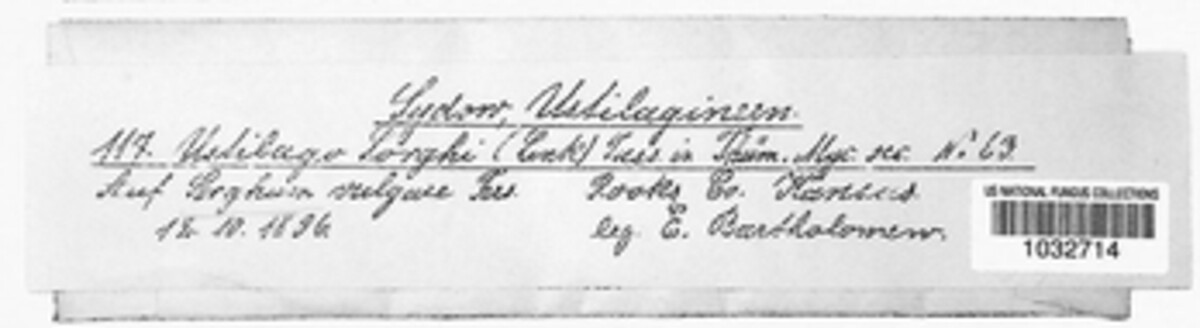 Sydow, Ustilagineen.
117. Ustilago Sorghi (Link) Pass in Thüm. Myc. sec. No 63.
Auf Sorghum vulgare Pers. Rooks Co. Kansas.
12. 10. 1896. leg. E. Bartholomew.
US NATIONAL FUNGUS COLLECTIONS
1032714